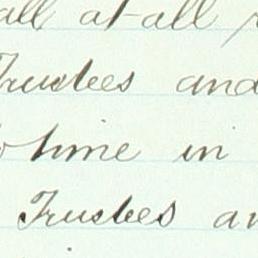 all at all
Trustees and
to time in
Trustees an